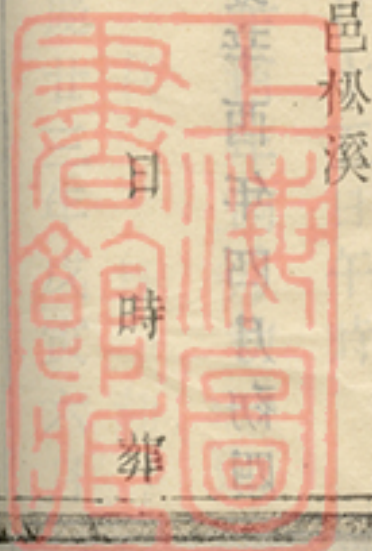 邑松溪
日時葬
上海圖書館藏